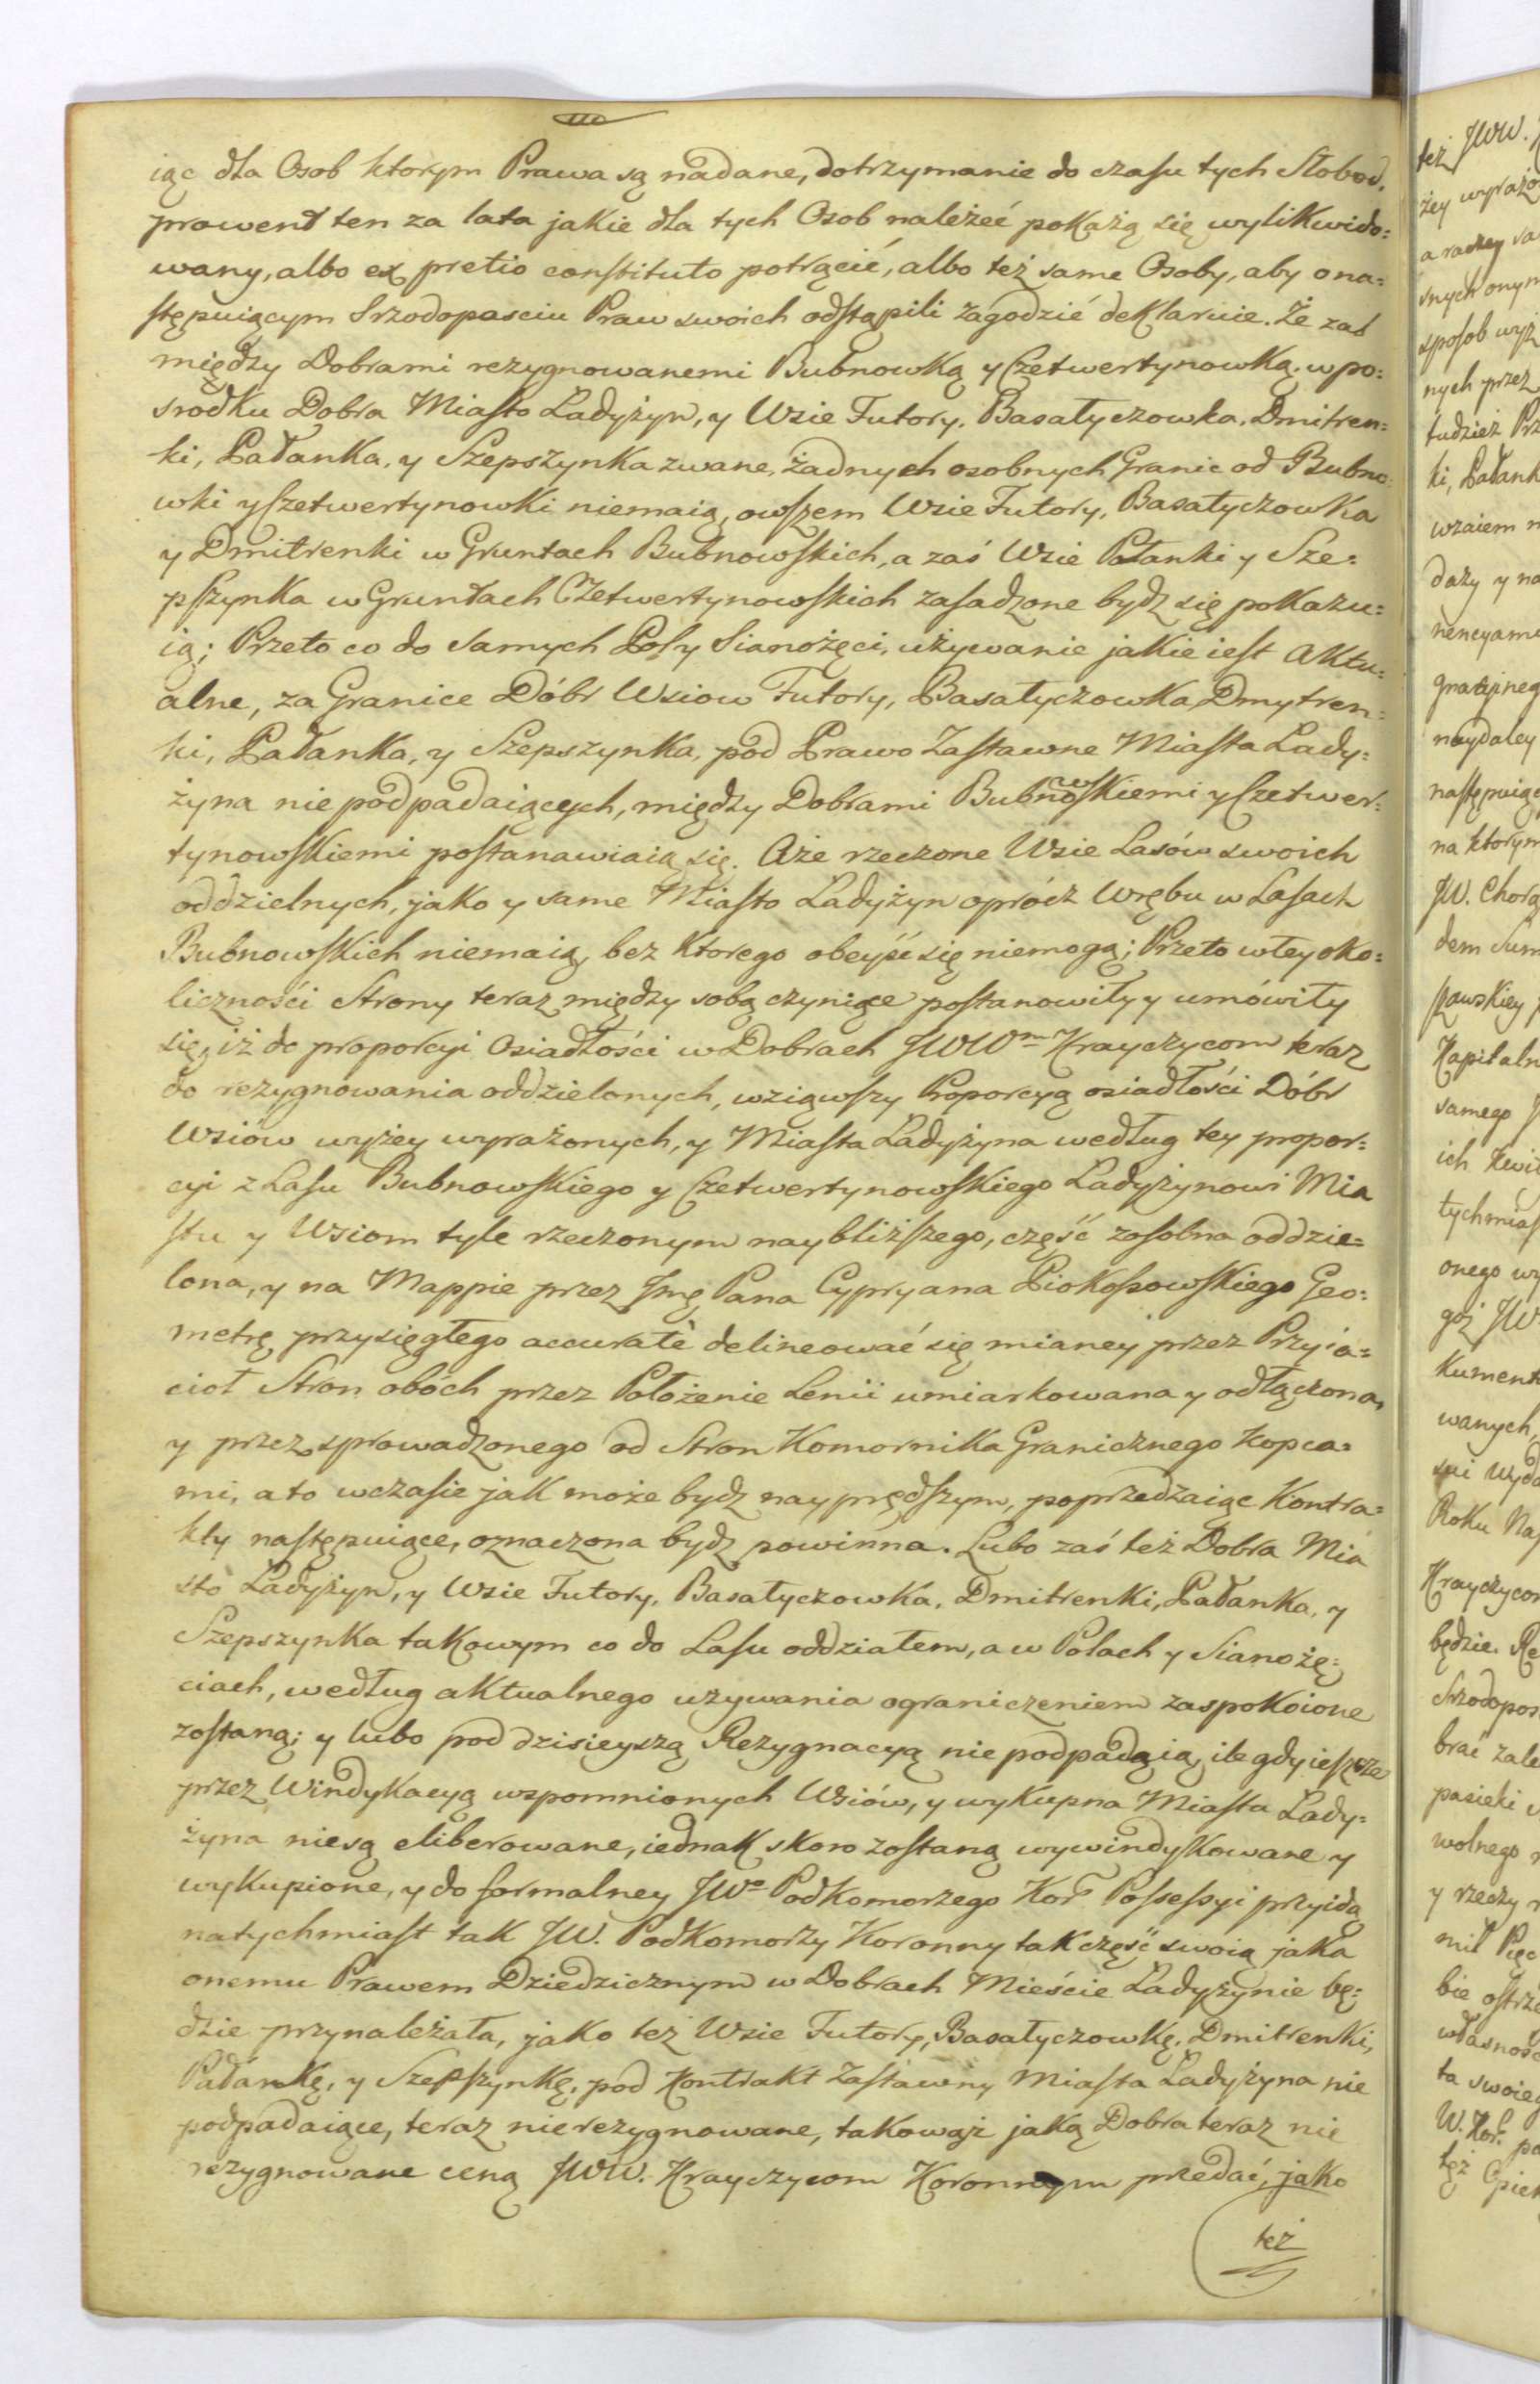 iąc dla Osob ktorym Prawa są nadane, dotrzymanie do czasu tych Słobod,
prowent ten za lata jakie dla tych Osob należeć pokażą się wylikwido=
wany, albo ex pretio constituto potrącić, albo też same Osoby, aby o na=
stępuiącym Srzodoposciu Praw swoich odstąpili zagodzić deklaruie. Że zaś
między Dobrami rezygnowanemi Bubnowką y Czetwertynowką w po=
srodku Dobra Miasto Ladyżyn, y Wsie Futory, Basałyczowka, Dmitren=
ki, Pałanka, y Szepszynka zwane, żadnych osobnych Granic od Bubno=
wki y Czetwertynowki niemaią, owszem Wsie Futory, Basałyczowka
y Dmitrenki w Gruntach Bubnowskich, a zaś Wsie Pałanki y Sze=
pszynka w Gruntach Czetwertynowskich zasadzone bydz się pokazu=
ią; Przeto co do samych Poly Sianożęci, używanie jakie iest Aktu=
alne, za Granice Dóbr Wsiow Futory, Basałyczowka, Dmytren=
ki, Pałanka, y Szepszynka, pod Prawo Zastawne Miasta Lady=
żyna nie podpadaiących, między Dobrami Bubnowskiemi y Czetwer=
tynowskiemi postanawiaią się. Aże rzeczone Wsie Lasów swoich
oddzielnych, jako y same Miasto Ladyżyn oprócz Wrębu w Lasach
Bubnowskich niemaią, bez ktorego obeyść się niemogą; Przeto w tey oko=
liczności Strony teraz między sobą czyniące postanowiły y umówiły
się, iż do proporcyi Osiadłości w Dobrach JWWm Krayczycom teraz
do rezygnowania oddzielonych, wziąwszy Proporcyą osiadłości Dóbr
Wsiów wyżey wyrażonych, y Miasta Ladyżyna według tey propor=
cyi z Lasu Bubnowskiego y Czetwertynowskiego Ladyżynowi Mia
stu y Wsiom tyle rzeczonym naybliższego, część zosobna oddzie=
lona, y na Mappie przez Jmę Pana Cypryana Piokossowskiego Geo=
metrę przysięgłego accuratè delineować się mianey przez Przyia=
cioł Stron obóch przez Położenie Lenii umiarkowana y odłączona,
y przez sprowadzonego od Stron Komornika Granicznego kopca=
mi, a to w czasie jak może bydz nayprędszym, poprzedzaiąc Kontra=
kty następuiące, oznaczona bydz powinna. Lubo zaś też Dobra Mia
sto Ladyżyn, y Wsie Futory, Basałyczowka, Dmitrenki, Pałanka, y
Szepszynka takowym co do Lasu oddziałem, a w Polach y Sianożę=
ciach, według aktualnego używania ograniczeniem zaspokoione
zostaną; y lubo pod dzisieyszą Rezygnacyą nie podpadaią, ile gdy ieszcze
przez Windykacyą wspomnionych Wsiów, y wykupna Miasta Lady=
żyna niesą eliberowane, iednak skoro zostaną wywindykowane y
wykupione, y do formalney JWo Podkomorzego Kor Possessyi przyidą
natychmiast tak JW. Podkomorzy Koronny tak część swoią jaka
onemu Prawem Dziedzicznym w Dobrach Mieście Ladyżynie bę=
dzie przynależała, jako też Wsie Futory, Basałyczowkę, Dmitrenki,
Pałankę, y Szepszynkę, pod Kontrakt Zastawny Miasta Ladyżyna nie
podpadaiące, teraz nierezygnowane, takowąż jaką Dobra teraz nie
rezygnowane ceną JWW. Krayczycom Koronnym przedać, jako
też